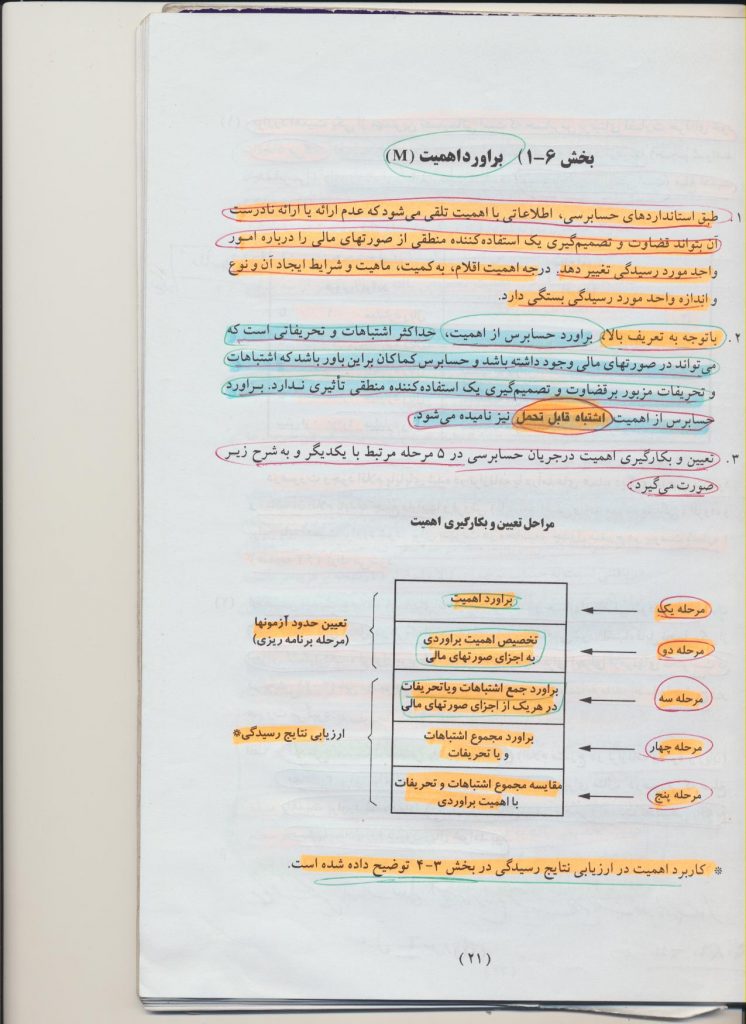 بخش ۶-۱) براورد اهمیت (M)
۱. طبق استانداردهای حسابرسی، اطلاعاتی با اهمیت تلقی می‌شود که عدم ارائه یا ارائه نادرست
آن بتواند قضاوت و تصمیم‌گیری یک استفاده‌کننده منطقی از صورتهای مالی را درباره امور
واحد مورد رسیدگی تغییر دهد. درجه اهمیت اقلام، به‌کمیت، ماهیت و شرایط ایجاد آن و نوع
و اندازه واحد مورد رسیدگی بستگی دارد.
۲. باتوجه به تعریف بالا، براورد حسابرس از اهمیت، حداکثر اشتباهات و تحریفاتی است که
می‌تواند در صورتهای مالی وجود داشته باشد و حسابرس کماکان براین باور باشد که اشتباهات
و تحریفات مزبور برقضاوت و تصمیم‌گیری یک استفاده‌کننده منطقی تأثیری ندارد. براورد
حسابرس از اهمیت اشتباه قابل تحمل نیز نامیده می‌شود.
۳. تعیین و بکارگیری اهمیت درجریان حسابرسی در ۵ مرحله مرتبط با یکدیگر و به شرح زیر
صورت می‌گیرد.
مراحل تعیین و بکارگیری اهمیت
مرحله یک
براورد اهمیت
مرحله دو
تخصیص اهمیت براوردی
به اجزای صورتهای مالی
تعیین حدود آزمونها
(مرحله برنامه ریزی)
مرحله سه
براورد جمع اشتباهات ویاتحریفات
در هریک از اجزای صورتهای مالی
مرحله چهار
براورد مجموع اشتباهات
و یا تحریفات
ارزیابی نتایج رسیدگی*
مرحله پنج
مقایسه مجموع اشتباهات و تحریفات
با اهمیت براوردی
* کاربرد اهمیت در ارزیابی نتایج رسیدگی در بخش ۳-۴ توضیح داده شده است.
(۲۱)